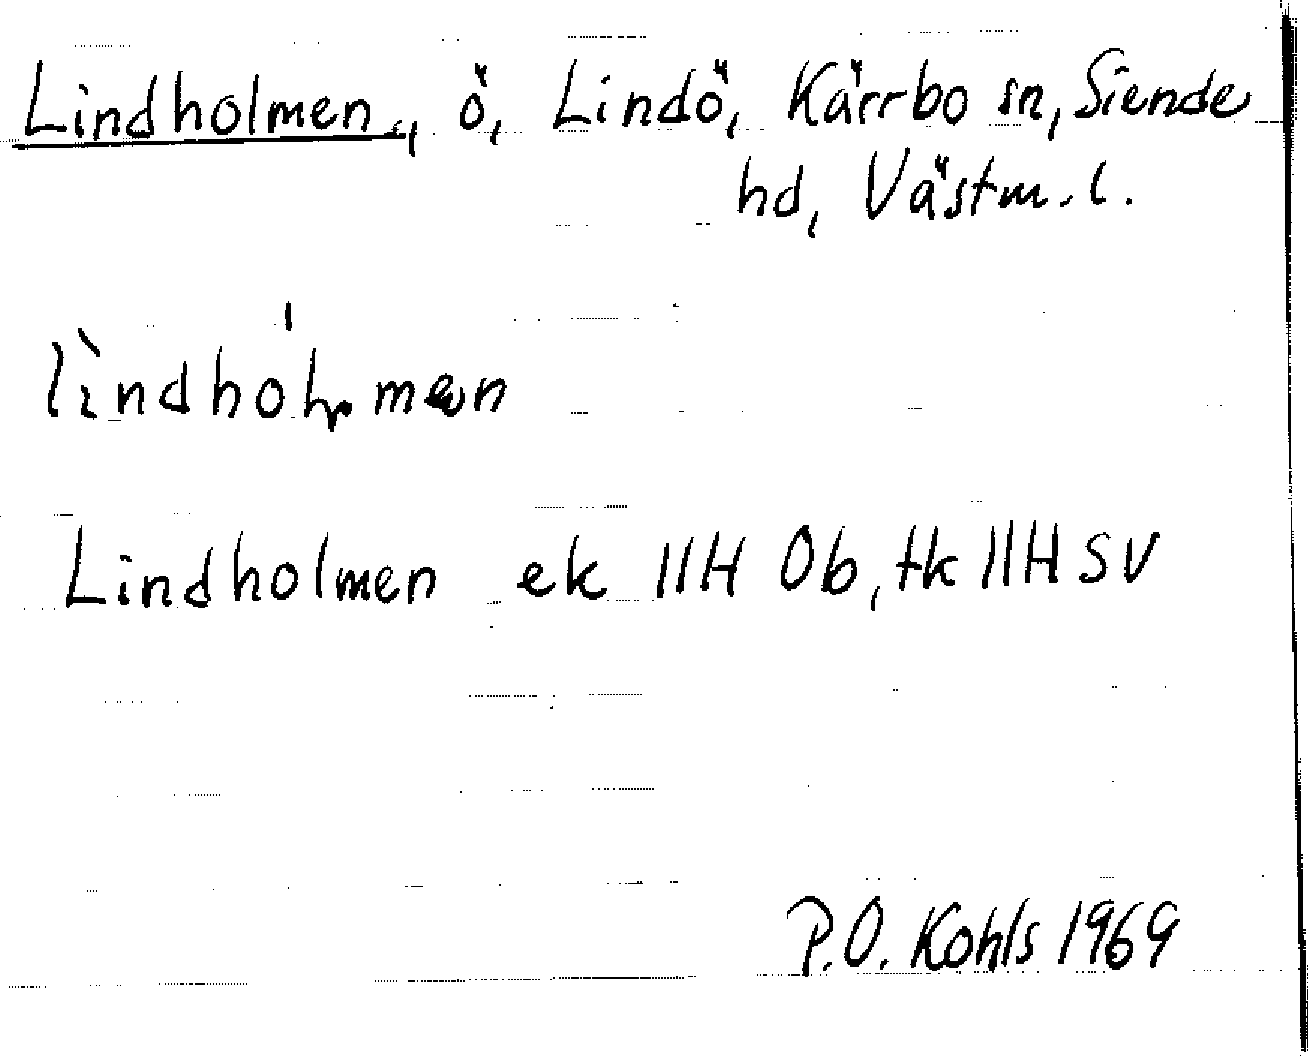 Lindholmen, ö, Lindö, Kärrbo sn, Siende
hd, Västm. l.
Lindholmen ek 11H 0b, tk 11H SV
P.O. Kohls 1969